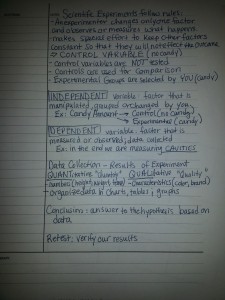 Scientific Experiments follow rules:
- An experimenter changes only one factor
and observes or measures what happens.
- makes special effort to keep other factors
constant so that they will not effect the outcome
⇒ CONTROL VARIABLE (no candy)
- control variables are NOT tested
- Controls are used for comparison
- Experimental Groups are selected by YOU (candy)
INDEPENDENT variable: factor that is
manipulated, grouped or changed by you.
Ex: Candy Amount → Control (no candy)
→ Experimental (candy)
DEPENDENT variable: factor that is
measured or observed; data collected
Ex: in the end we are measuring CAVITIES
Data Collection - Results of Experiment
QUANTitative "Quantity" QUALitative "Quality"
- numbers (height, weight, temp) - characteristics (color, brand)
- organize data in charts, tables, graphs
Conclusion: answer to the hypothesis based on
data.
Retest: verify our results